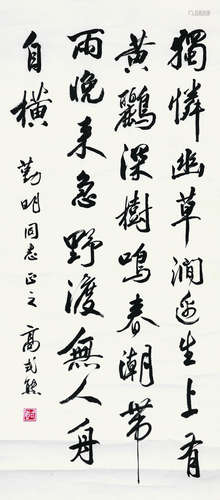 獨憐幽草澗邊生上有
黃鸝深樹鳴春潮帶
雨晚來急野渡無人舟
自橫
勤明同志正之 高式熊